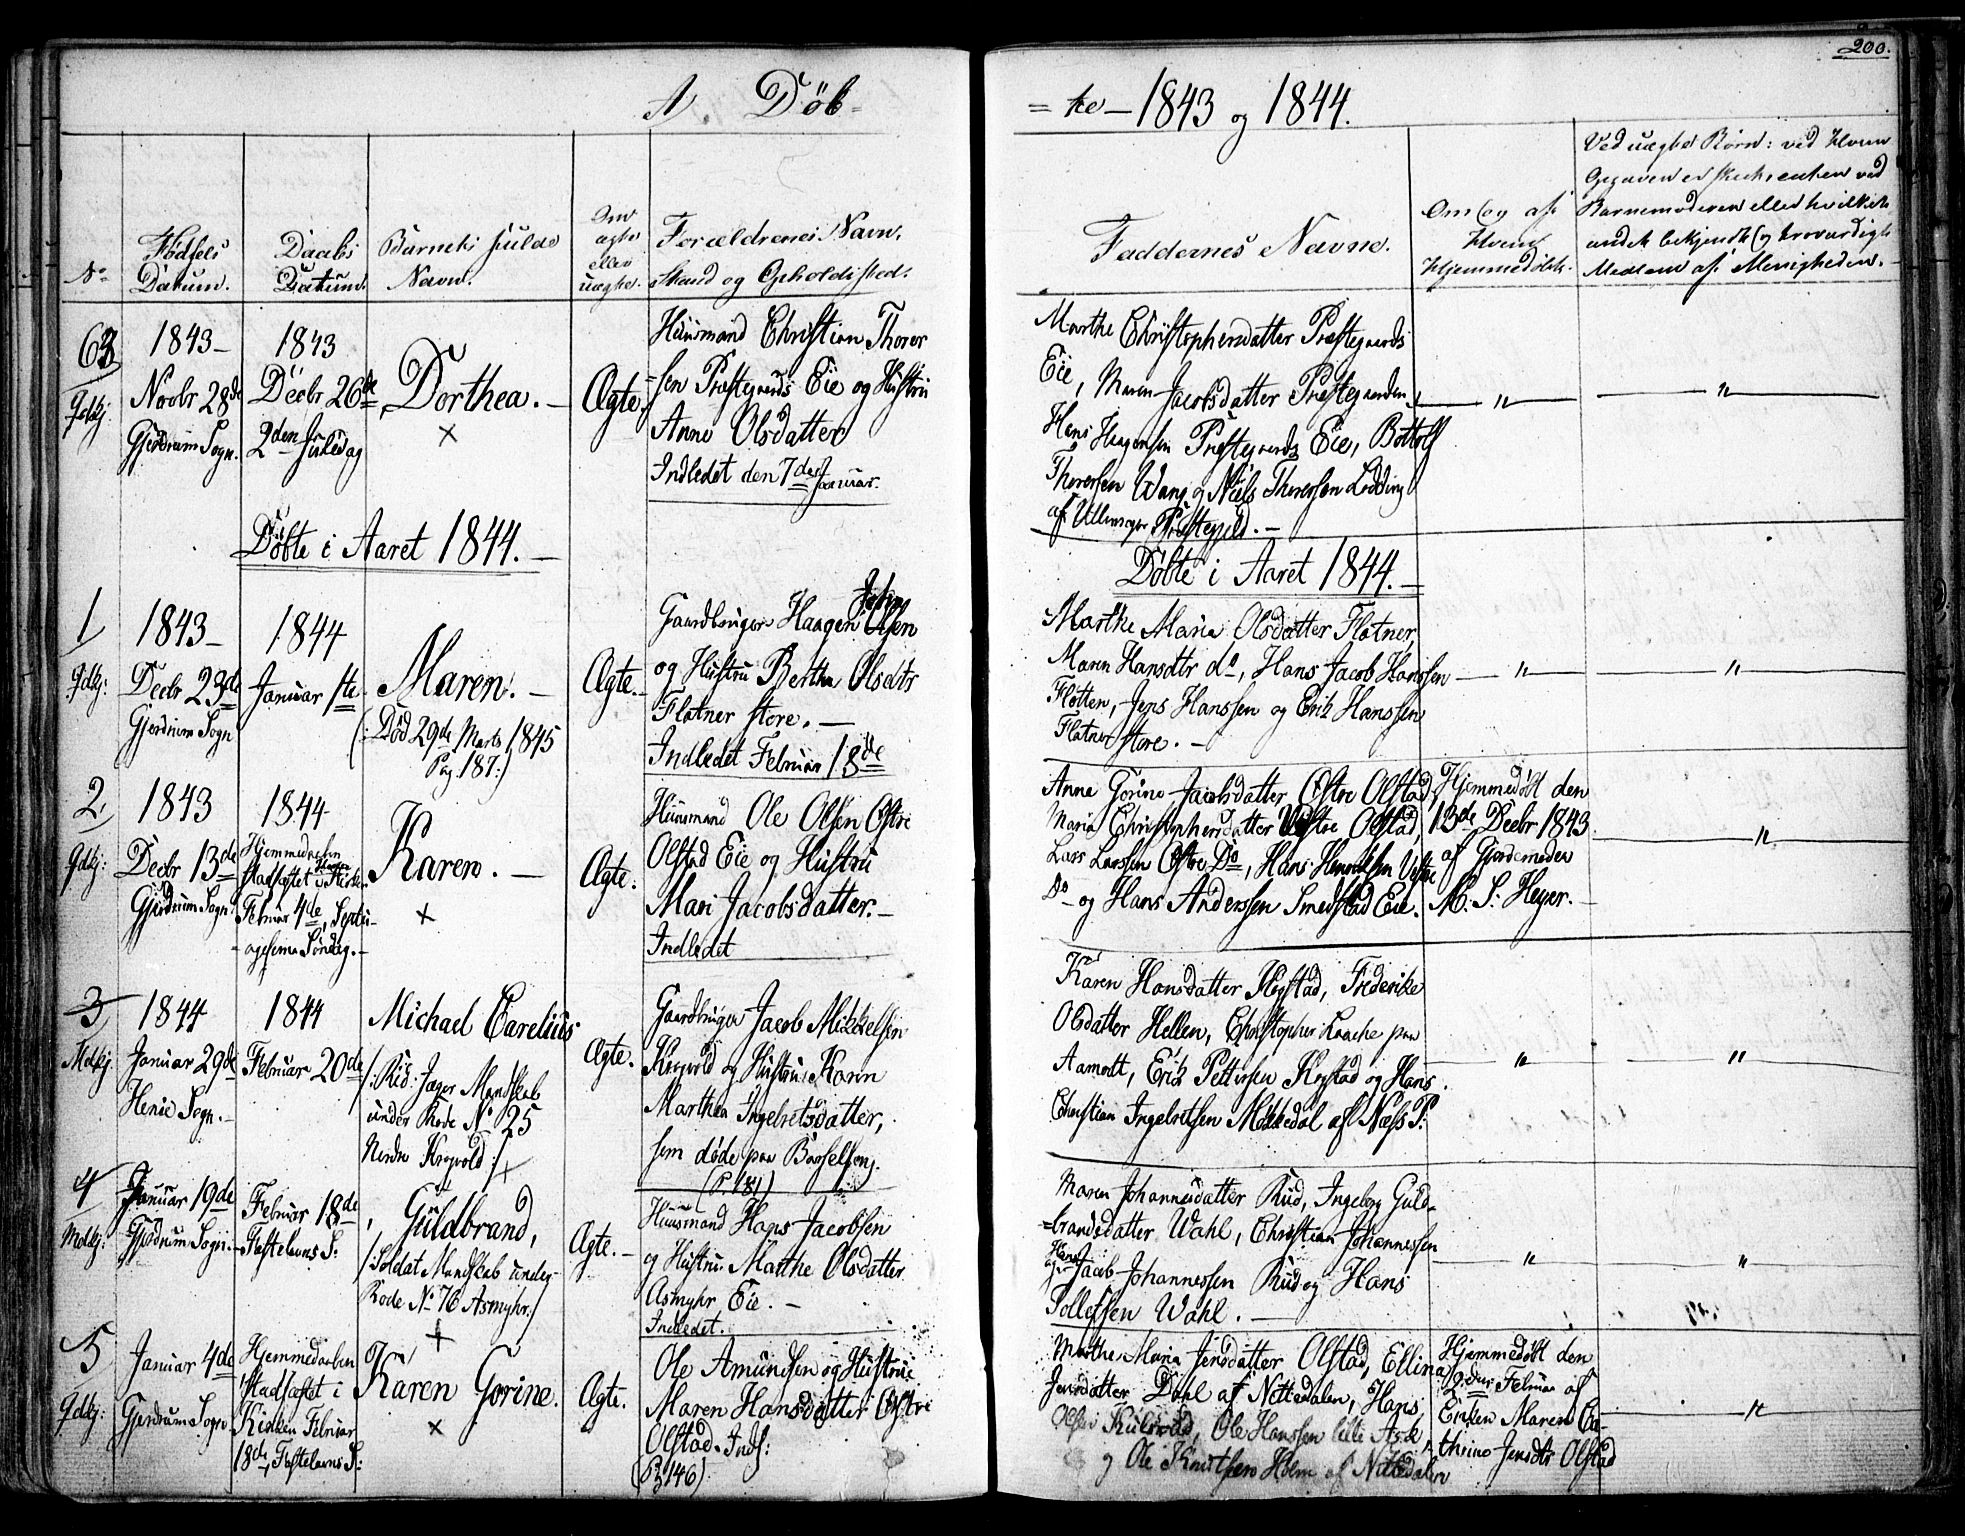 200.
A Döb-
=te - 1843 og 1844.
No
Födsels Datum.
Daabs Datum.
Barnets fulde Navn.
Om ægte eller uægte.
Forældrenes Navn, Stand og Opholdssted.
Faddernes Navne.
Om og af Hvem Hjemmedøbt.
Ved uægte Børn: ved Hvem
Opgaven er skeet, enten ved
Barnemoderen eller hvilket
andet bekjendt og troværdigt
Medlem af Menigheden.
63
Qvdkj:
1843-
Novbr 28de
Gjerdrum Sogn.
1843
Decbr 26de
2den Juledag
Dorthea. -
×
Ægte.
Huusmand Christian Thorer
=sen Præstegaards Eie og Hustru
Anne Olsdatter
Indledet den 7de Januar.
Marthe Christophersdatter Præstegaards
Eie, Maren Jacobsdatter Præstegaarden,
Hans Haagensen Præstegaards Eie, Bottolf
Thorersen Wang og Niels Thorersen
af Ullensager Præstegjeld. -
"
"
Döbte i Aaret 1844. -
Döbte i Aaret 1844. -
1
Qdkj:
1843-
Decbr 23de
Gjerdrum Sogn
1844
Januar 1ste
Maren. -
(: Död 29de Marts 1845
Pag. 187:)
Ægte.
Gaardbruger Haagen Olsen
og Hustru Berthe Olsdtr
Flatner store. -
Indledet Februar 18de
Marthe Maria Olsdatter Flatner,
Maren Hansdtr do, Hans Jacob Hanssen
Flatten, Jens Hanssen og Erik Hanssen
Flatner store. -
"
"
2
Qdkj:
1843
Decbr 13de
Gjerdrum Sogn
1844
Hjemmedaaben
stadfæstet i Kirken
Februar 4de, Septu-
agesima Söndag. -
Karen. -
×
Ægte.
Huusmand Ole Olsen Østre
Olstad Eie og Hustru
Mari Jacobsdatter. -
Indledet
Anne Gorine Jacobsdatter Østre Olstad,
Maria Christophersdatter Vestre Olstad
Lars Larssen Østre Do, Hans Henriksen Vestre
Do - og Hans Anderssen Smedstad Eie.
Hjemmedöbt den
13de Decbr 1843
af Gjordemoder
M. S. Heyer.
"
3
Mdkj:
1844
Januar 29de
Henie Sogn. -
1844
Februar 20de
Michael Carelius
/: Rid: Jæger Mandskab
under Rode No 25
Nerdre Krogvold :/
×
Ægte.
Gaardbruger Jacob Mikkelsen
Krogvold og Hustru Karen
Marthea Ingebretsdatter,
som døde paa Barselseng.
(P. 181)
Karen Hansdatter Kogstad, Frederike
Olsdatter Hellen, Christopher Laache paa
Aamodt, Erik Pettersen Kogstad og Hans
Christian Ingebretsen Mökkedal af Næss P:
"
"
4
Mdkj:
Januar 19de
Gjerdrum Sogn. -
Februar 18de
Fastelavns S:
Guldbrand,
/: Soldat Mandskab under
Rode No 76 Asmyhr:/
×
Ægte. -
Huusmand Hans Jacobsen
og Hustru Marthe Olsdatter
Asmyhr Eie. -
Indledet.
Maren Johannesdatter Rud, Ingeborg Guld-
=brandsdatter Wahl, Christian Johannessen
Jacob Johannessen Rud og Hans
Tollefsen Wahl. -
"
"
5
Qdkj:
Januar 4de
Gjerdrum Sogn
Hjemmedaaben
stadfæstet i
Kirken Februar
18de, Fastelavns S:
Karen Gorine.
×
Ægte.
Ole Amundsen og Hustrue
Maren Hansdatter Østre
Olstad. Indl:
(P. 146)
Marthe Maria Jensdatter Olstad, Ellina
Jensdatter Dahl af Nittedalen, Hans
Olsen Kulsrud, Ole Hanssen lille Ask,
og Ole Knutsen Holm af Nittedalen
Hjemmedöbt den
2den Februar af
Enken Maren Ca-
thrine Jensdtr Olstad
"